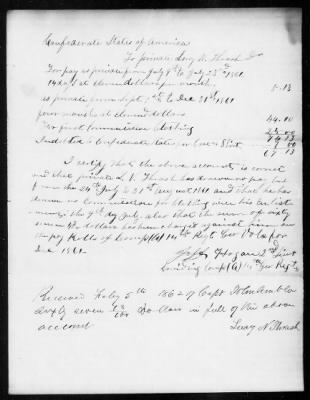 Confederate States of America
To private Levy N. Thrash Dr
For pay as private from July 9th to July 23rd 1861
14 days at eleven dollars per month 5.13
as private from Sept 1st to Dec 31st 1861
four months at eleven dollars 44.00
For first Commutation Clothing 25.00
74.13
Indebted to Confederates for 7.00
67.13
I certify that the above account is correct
and that private L. N. Thrash has drawn no pay but
from the 24th July to 31st August 1861 and that he has
drawn no Commutation for clothing since his enlist-
ment the 9th day July. also that the sum of sixty
seven dollars has been charged against him on
the pay Rolls of Comp (A) 14th Regt Geo Vols for
Dec 1861.
Hogan 2nd Lieut
Comp (A) 14th Geo Regt
Received Feby 5th 1862 of Capt
Sixty seven 13/100 Dollars in full of the above
account
Levy N Thrash